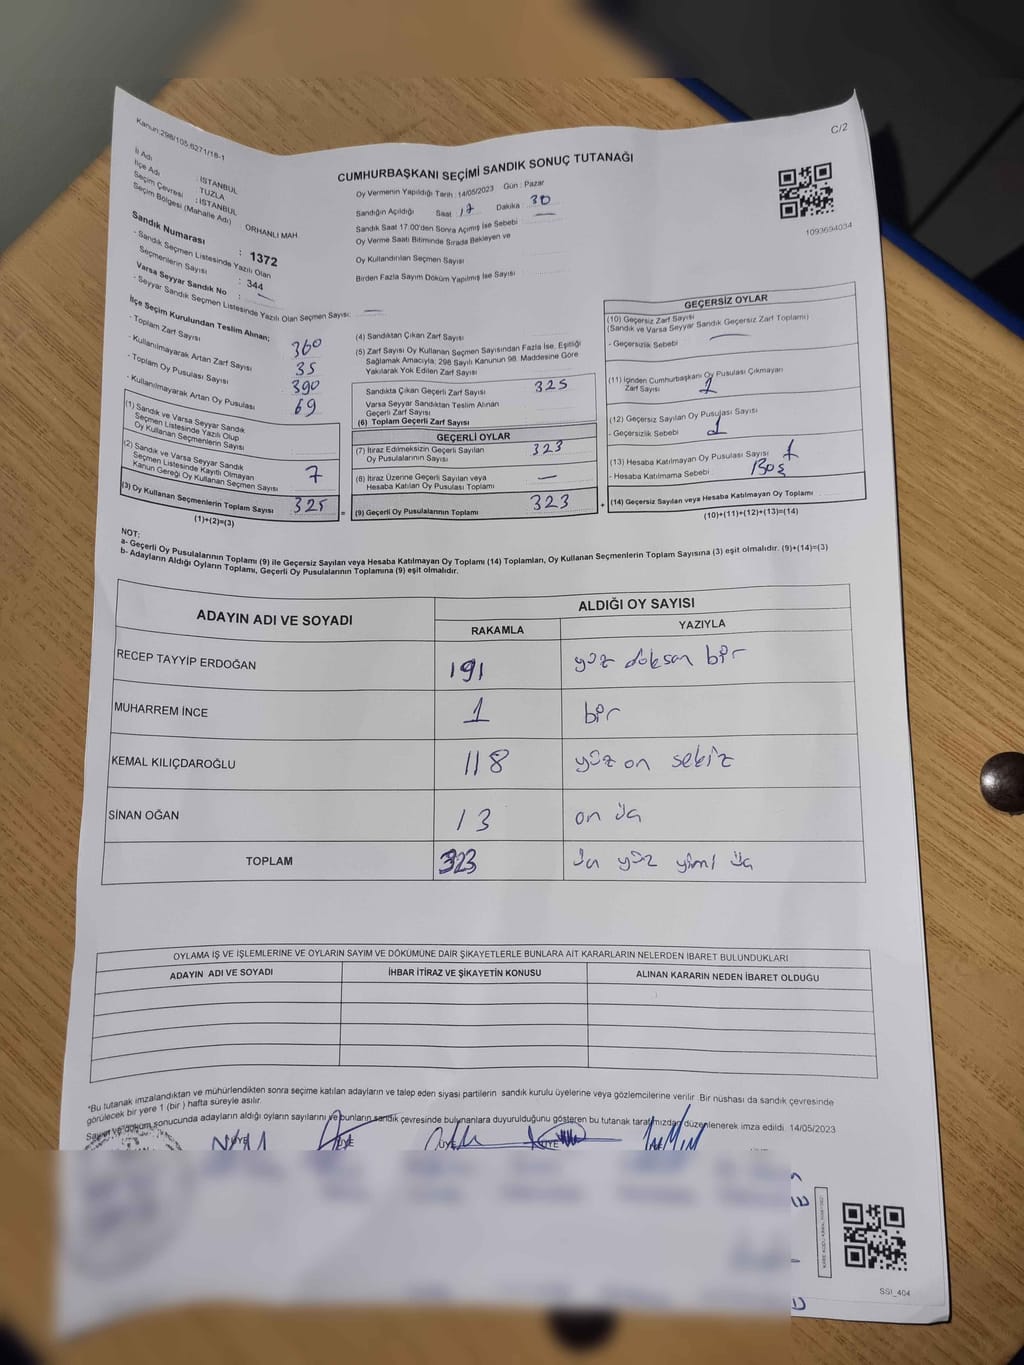 Kanun:298/105;6271/16-1
C/2
CUMHURBAŞKANI SEÇİMİ SANDIK SONUÇ TUTANAĞI
İl Adı : İSTANBUL
İlçe Adı : TUZLA
Seçim Çevresi : İSTANBUL
Seçim Bölgesi (Mahalle Adı) ORHANLI MAH.
Sandık Numarası : 1372
- Sandık Seçmen Listesinde Yazılı Olan
Seçmenlerin Sayısı : 344
Varsa Seyyar Sandık No : —
- Seyyar Sandık Seçmen Listesinde Yazılı Olan Seçmen Sayısı: —
Oy Vermenin Yapıldığı Tarih :14/05/2023 Gün : Pazar
Sandığın Açıldığı Saat 17 Dakika 30
Sandık Saat 17.00'den Sonra Açımış İse Sebebi —
Oy Verme Saati Bitiminde Sırada Bekleyen ve
Oy Kullandırılan Seçmen Sayısı
Birden Fazla Sayım Döküm Yapılmış İse Sayısı
1093694034
İlçe Seçim Kurulundan Teslim Alınan;
- Toplam Zarf Sayısı 360
- Kullanılmayarak Artan Zarf Sayısı 35
- Toplam Oy Pusulası Sayısı 390
- Kullanılmayarak Artan Oy Pusulası 69
(1) Sandık ve Varsa Seyyar Sandık
Seçmen Listesinde Yazılı Olup
Oy Kullanan Seçmenlerin Sayısı
(2) Sandık ve Varsa Seyyar Sandık
Seçmen Listesinde Kayıtlı Olmayan
Kanun Gereği Oy Kullanan Seçmen Sayısı 7
(3) Oy Kullanan Seçmenlerin Toplam Sayısı 325
(1)+(2)=(3)
(4) Sandıktan Çıkan Zarf Sayısı
(5) Zarf Sayısı Oy Kullanan Seçmen Sayısından Fazla İse, Eşitliği
Sağlamak Amacıyla; 298 Sayılı Kanunun 98. Maddesine Göre
Yakılarak Yok Edilen Zarf Sayısı
Sandıkta Çıkan Geçerli Zarf Sayısı 325
Varsa Seyyar Sandıktan Teslim Alınan
Geçerli Zarf Sayısı
(6) Toplam Geçerli Zarf Sayısı
GEÇERLİ OYLAR
(7) İtiraz Edilmeksizin Geçerli Sayılan
Oy Pusulalarının Sayısı 323
(8) İtiraz Üzerine Geçerli Sayılan veya
Hesaba Katılan Oy Pusulası Toplamı —
= (9) Geçerli Oy Pusulalarının Toplamı 323
GEÇERSİZ OYLAR
(10) Geçersiz Zarf Sayısı
(Sandık ve Varsa Seyyar Sandık Geçersiz Zarf Toplamı) —
- Geçersizlik Sebebi
(11) İçinden Cumhurbaşkanı Oy Pusulası Çıkmayan
Zarf Sayısı 1
(12) Geçersiz Sayılan Oy Pusulası Sayısı
- Geçersizlik Sebebi 1
(13) Hesaba Katılmayan Oy Pusulası Sayısı
- Hesaba Katılmama Sebebi Boş
+ (14) Geçersiz Sayılan veya Hesaba Katılmayan Oy Toplamı
(10)+(11)+(12)+(13)=(14)
NOT:
a- Geçerli Oy Pusulalarının Toplamı (9) ile Geçersiz Sayılan veya Hesaba Katılmayan Oy Toplamı (14) Toplamları, Oy Kullanan Seçmenlerin Toplam Sayısına (3) eşit olmalıdır. (9)+(14)=(3)
b- Adayların Aldığı Oyların Toplamı, Geçerli Oy Pusulalarının Toplamına (9) eşit olmalıdır.
ADAYIN ADI VE SOYADI ALDIĞI OY SAYISI
RAKAMLA YAZIYLA
RECEP TAYYİP ERDOĞAN 191 yüz doksan bir
MUHARREM İNCE 1 bir
KEMAL KILIÇDAROĞLU 118 yüz on sekiz
SİNAN OĞAN 13 on üç
TOPLAM 323 üç yüz yimi üç
OYLAMA İŞ VE İŞLEMLERİNE VE OYLARIN SAYIM VE DÖKÜMÜNE DAİR ŞİKAYETLERLE BUNLARA AİT KARARLARIN NELERDEN İBARET BULUNDUKLARI
ADAYIN ADI VE SOYADI İHBAR İTİRAZ VE ŞİKAYETİN KONUSU ALINAN KARARIN NEDEN İBARET OLDUĞU
*Bu tutanak imzalandıktan ve mühürlendikten sonra seçime katılan adayların ve talep eden siyasi partilerin sandık kurulu üyelerine veya gözlemcilerine verilir. Bir nüshası da sandık çevresinde
görülecek bir yere 1 (bir ) hafta süreyle asılır.
Sayım ve döküm sonucunda adayların aldığı oyların sayılarını ve bunların sandık çevresinde bulunanlara duyurulduğunu gösteren bu tutanak tarafımızdan düzenlenerek imza edildi. 14/05/2023
ÜYE ÜYE ÜYE ÜYE
SSI_404